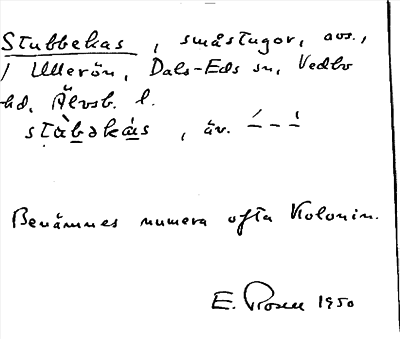 Stubbekas, småstugor, avs.,
/ Ullerön, Dals-Eds sn, Vedbo
hd, Älvsb. l.
stàbəkás, äv. – – –
Benämnes numera ofta Kolonin.
E. Rosell 1950